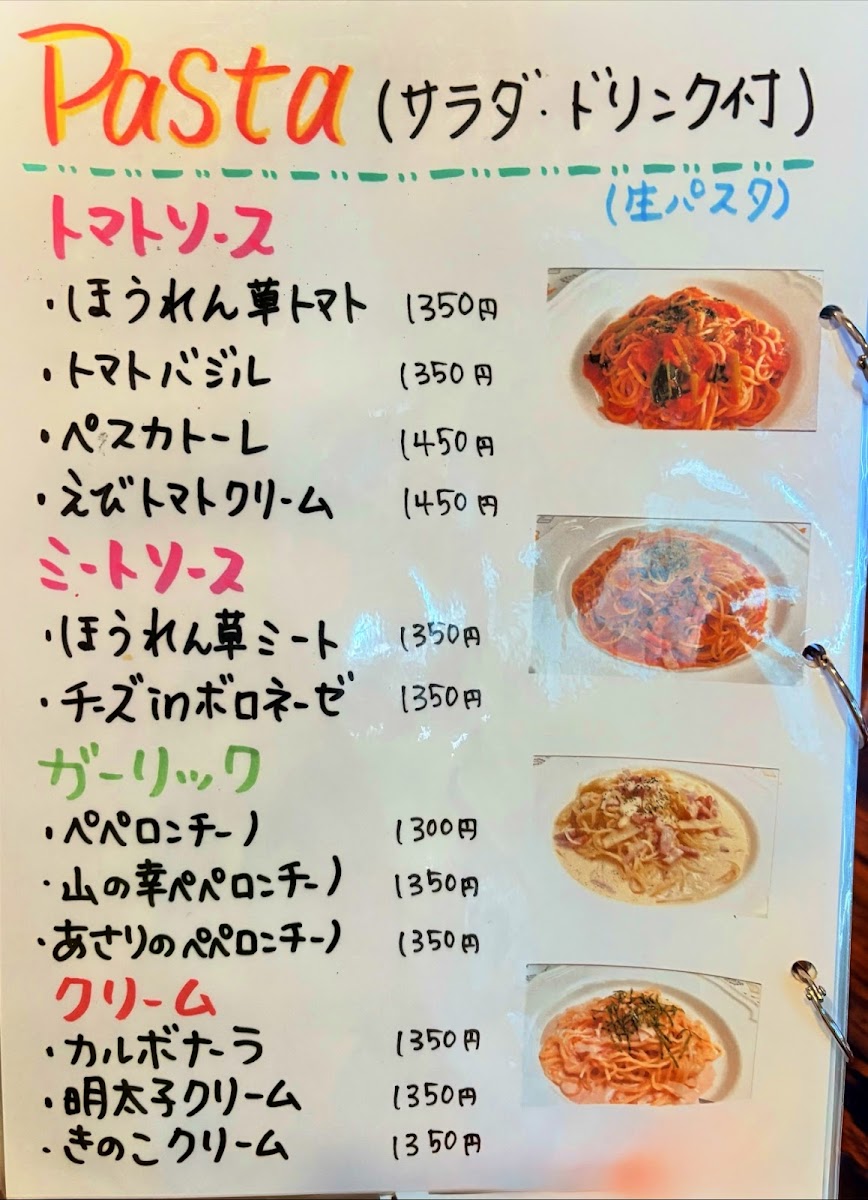 Pasta (サラダ・ドリンク付)
(生パスタ)
トマトソース
・ほうれん草トマト 1350円
・トマトバジル 1350円
・ペスカトーレ 1450円
・えびトマトクリーム 1450円
ミートソース
・ほうれん草ミート 1350円
・チーズinボロネーゼ 1350円
ガーリック
・ペペロンチーノ 1300円
・山の幸ペペロンチーノ 1350円
・あさりのペペロンチーノ 1350円
クリーム
・カルボナーラ 1350円
・明太子クリーム 1350円
・きのこクリーム 1350円